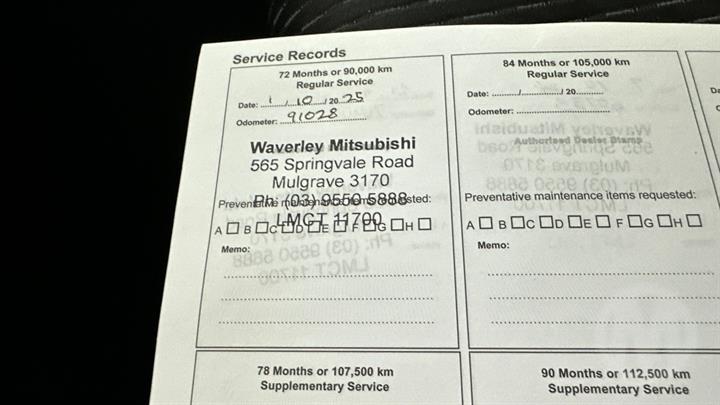 Service Records
72 Months or 90,000 km
Regular Service
Date: 1 / 10 / 20 25
Odometer: 91028
Waverley Mitsubishi
565 Springvale Road
Mulgrave 3170
Ph: (03) 9550 5888
Preventative maintenance items requested:
LMCT 11700
A B C D E F G H
Memo:
84 Months or 105,000 km
Regular Service
Date: ........../........../ 20..........
Odometer: ..............................
Authorised Dealer Stamp
Preventative maintenance items requested:
A B C D E F G H
Memo:
78 Months or 107,500 km
Supplementary Service
90 Months or 112,500 km
Supplementary Service